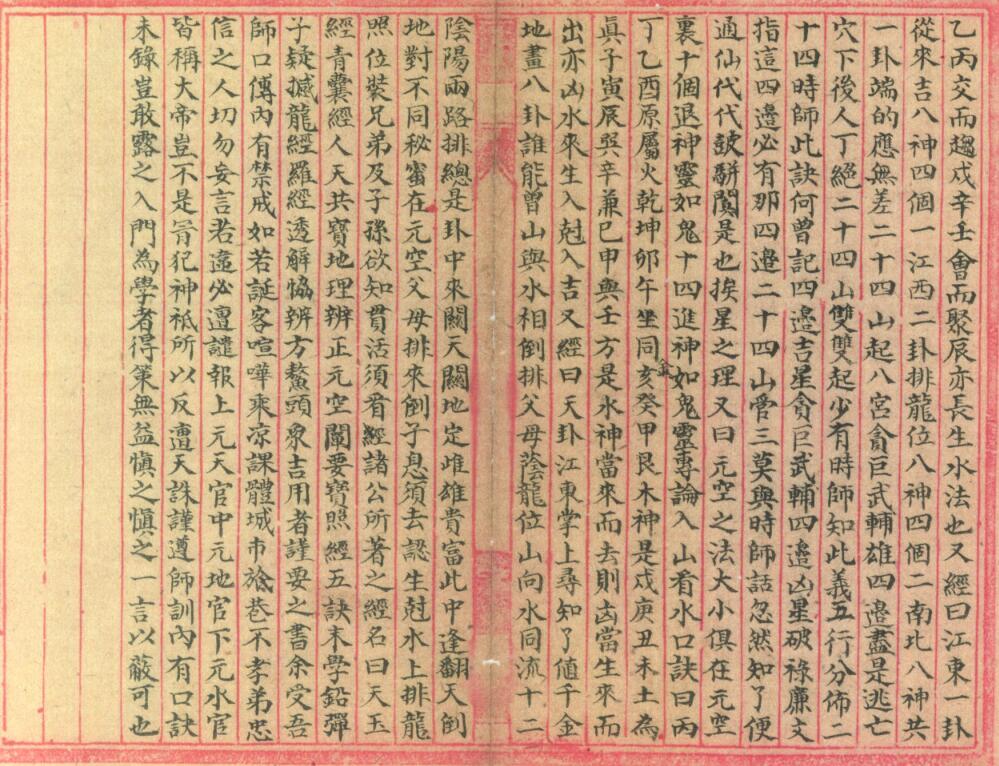 乙丙交而趨戌辛壬會而聚辰亦長生水法也又經曰江東一卦
從來吉八神四個一江西二卦排龍位八神四個二南北八神共
一卦端的應無差二十四山起八宮貪巨武輔雄四邉盡是逃亡
穴下後人丁絕二十四山雙雙起少有時師知此義五行分佈二
十四時師此訣何曾記四邉吉星貪巨武輔四邉凶星破祿廉文
指這四邉必有那四邉二十四山管三莫與時師話忽然知了便
通仙代代皷駢闐是也挨星之理又曰元空之法大小俱在元空
裏十個退神靈如鬼十四進神如鬼靈專論入山看水口訣曰丙
丁乙酉原屬火乾坤卯午坐同金亥癸甲艮木神是戌庚丑未土為
眞子寅辰巽辛兼巳申與壬方是水神當來而去則凶當生來而
出亦凶水來生入尅入吉又經曰天卦江東掌上尋知了值千金
地畫八卦誰能曾山與水相倒排父母蔭龍位山向水同流十二
陰陽兩路排總是卦中來關天關地定雌雄貴富此中逢翻天倒
地對不同秘蜜在元空父母排來倒子息須去認生尅水上排龍
照位裝兄弟及子孫欲知貫活須看經諸公所著之經名曰天玉
經青囊經人天共寶地理辨正元空闡要寶照經五訣末學鉛彈
子疑撼龍經羅經透解協辨方鰲頭衆吉用者謹要之書余受吾
師口傳內有禁戒如若誕客喧嘩乘凉課體城市巷不孝弟忠
信之人切勿妄言若違必遭譴報上元天官中元地官下元水官
皆稱大帝豈不是冐犯神祇所以反遭天誅謹遵師訓內有口訣
未錄豈敢露之入門為學者得策無益愼之愼之一言以蔽可也